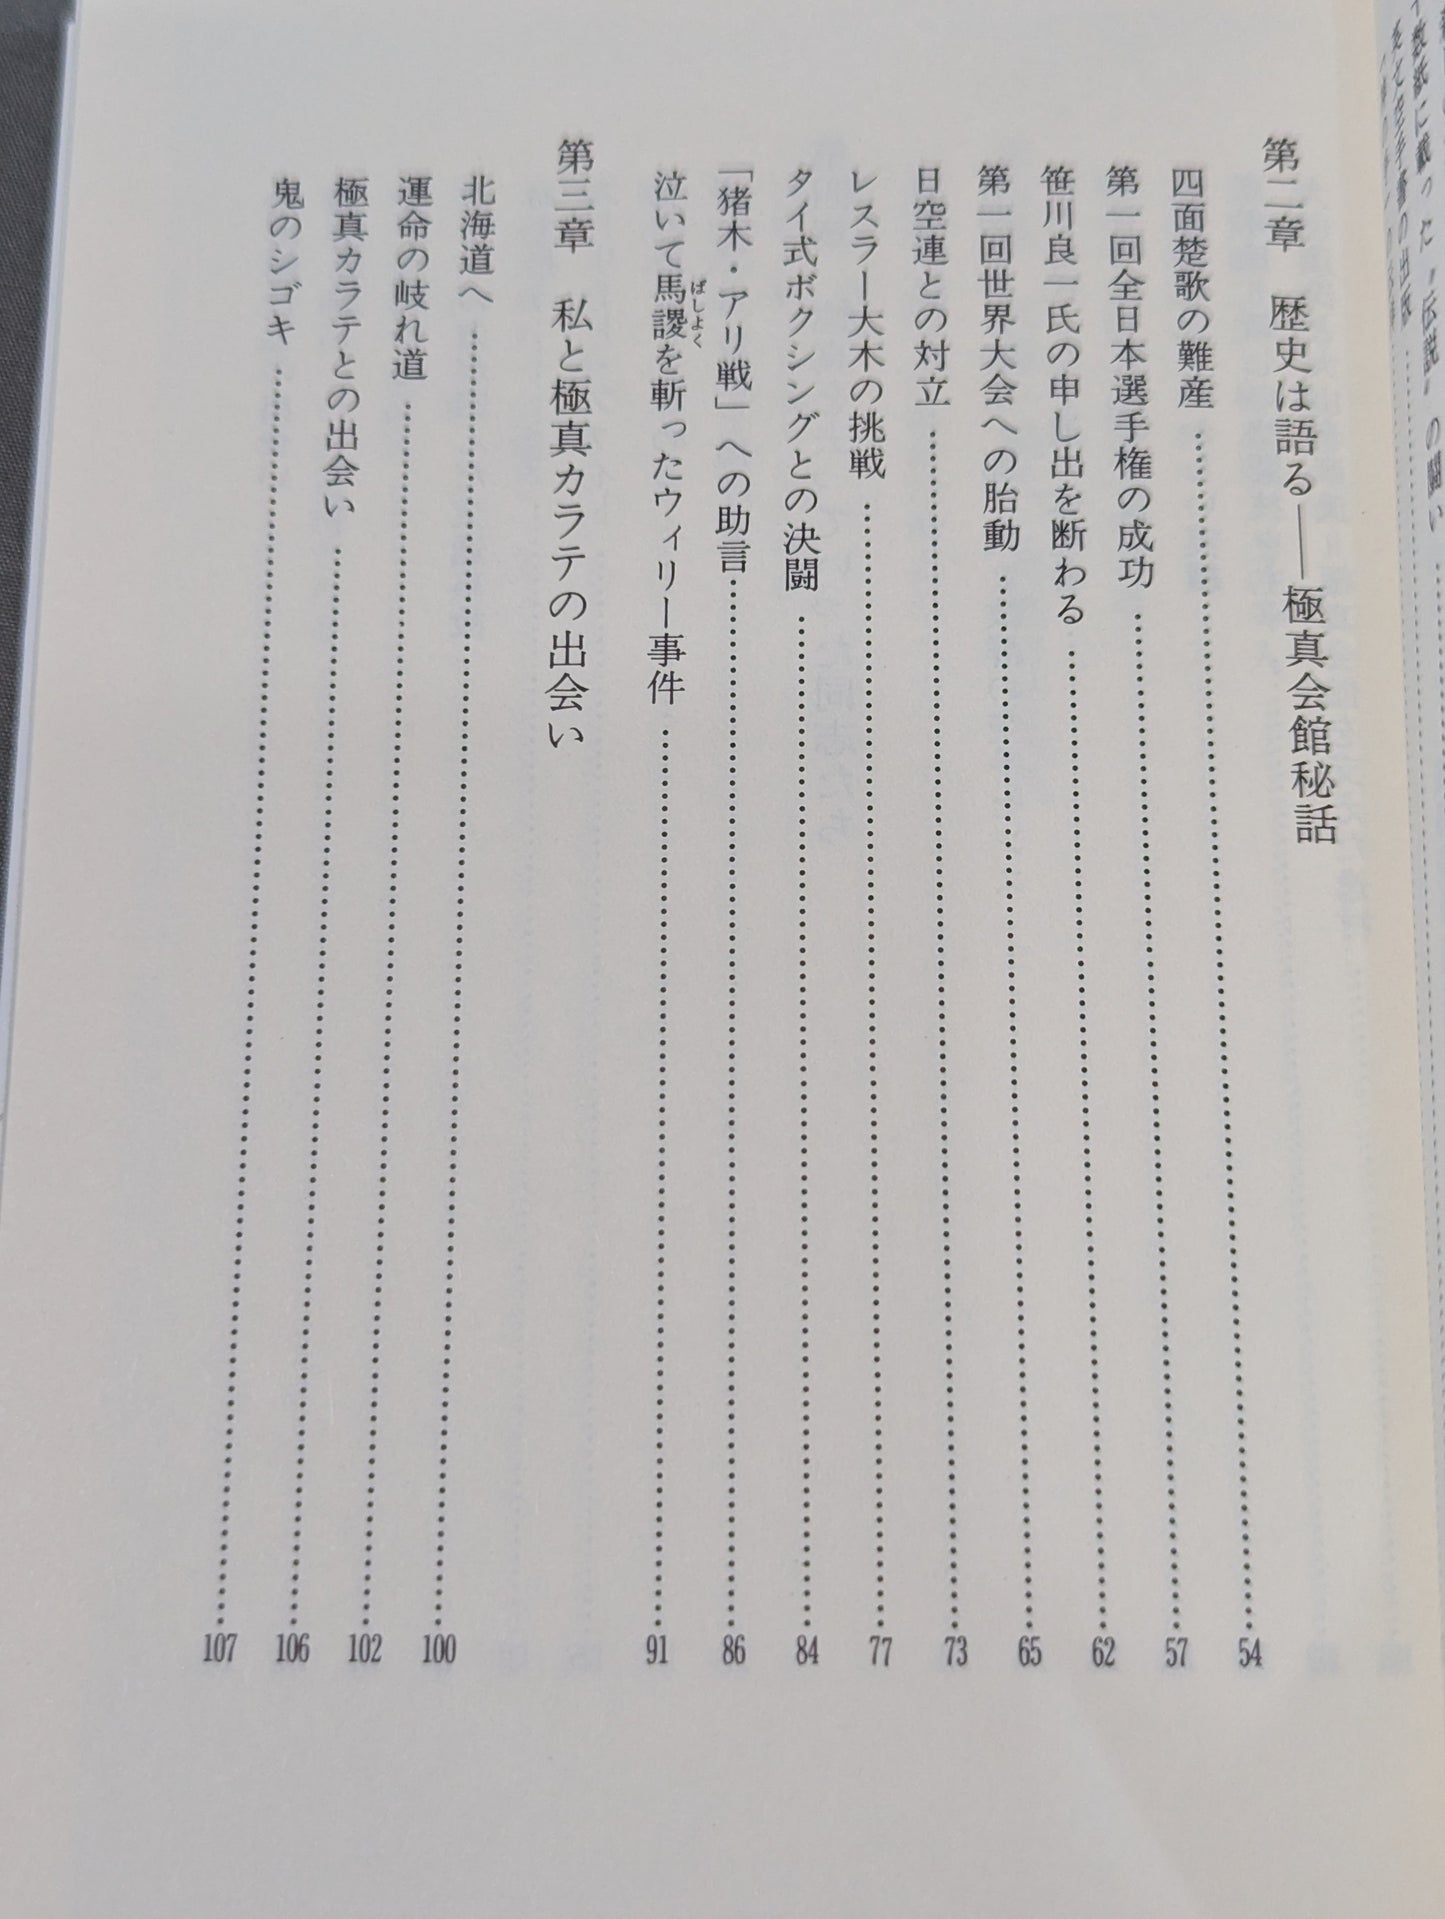 数紙に載った〝伝説〟の闘い
第二章　歴史は語る――極真会館秘話
四面楚歌の難産……54
第一回全日本選手権の成功……57
笹川良一氏の申し出を断わる……62
第一回世界大会への胎動……65
日空連との対立……73
レスラー大木の挑戦……77
タイ式ボクシングとの決闘……84
「猪木・アリ戦」への助言……86
泣いて馬謖を斬ったウィリー事件……91
ばしよく
第三章　私と極真カラテの出会い
北海道へ……100
運命の岐れ道……102
極真カラテとの出会い……106
鬼のシゴキ……107